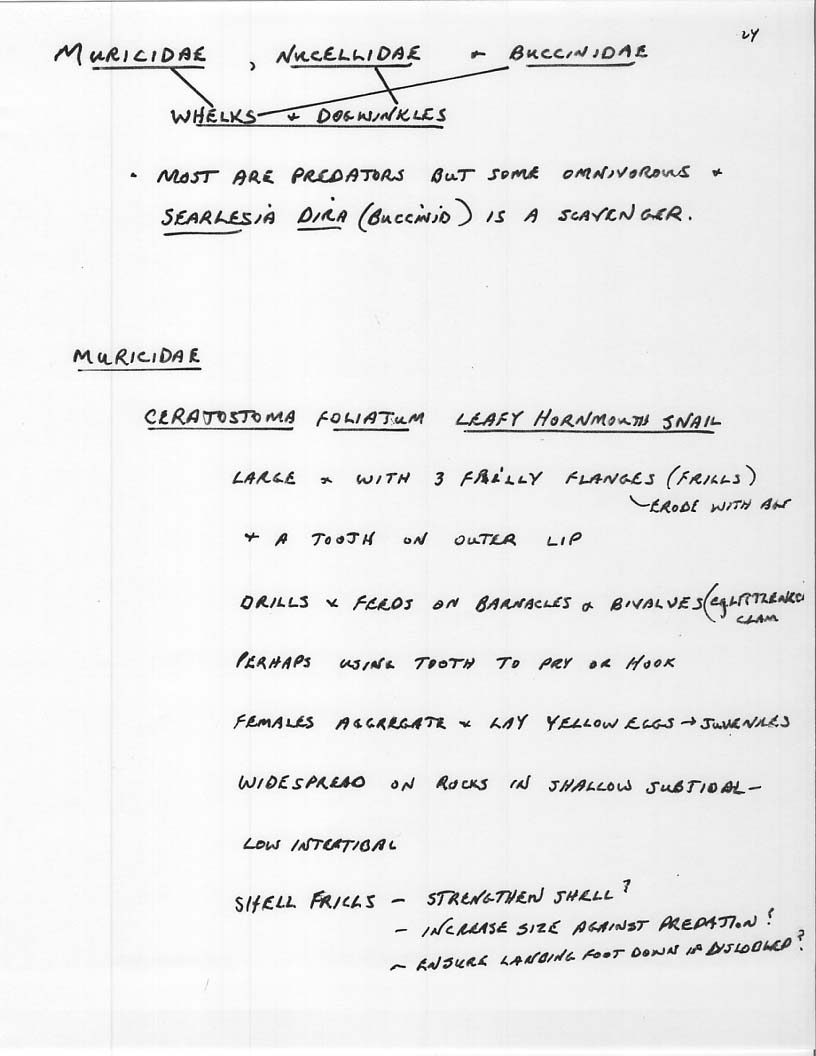 24
MURICIDAE, NUCELLIDAE & BUCCINIDAE
WHELKS & DOGWINKLES
• MOST ARE PREDATORS BUT SOME OMNIVOROUS &
SEARLESIA DIRA (BUCCINID) IS A SCAVENGER.
MURICIDAE
CERATOSTOMA FOLIATUM LEAFY HORNMOUTH SNAIL
LARGE & WITH 3 FRILLY FLANGES (FRILLS)
ERODE WITH AGE
& A TOOTH ON OUTER LIP
DRILLS & FEEDS ON BARNACLES & BIVALVES (eg LITTLENECK
CLAM
PERHAPS USING TOOTH TO PRY OR HOOK
FEMALES AGGREGATE & LAY YELLOW EGGS → JUVENILES
WIDESPREAD ON ROCKS IN SHALLOW SUBTIDAL –
LOW INTERTIBAL
SHELL FRILLS – STRENGTHEN SHELL?
– INCREASE SIZE AGAINST PREDATION?
– ENSURE LANDING FOOT DOWN IF DISLODGED?